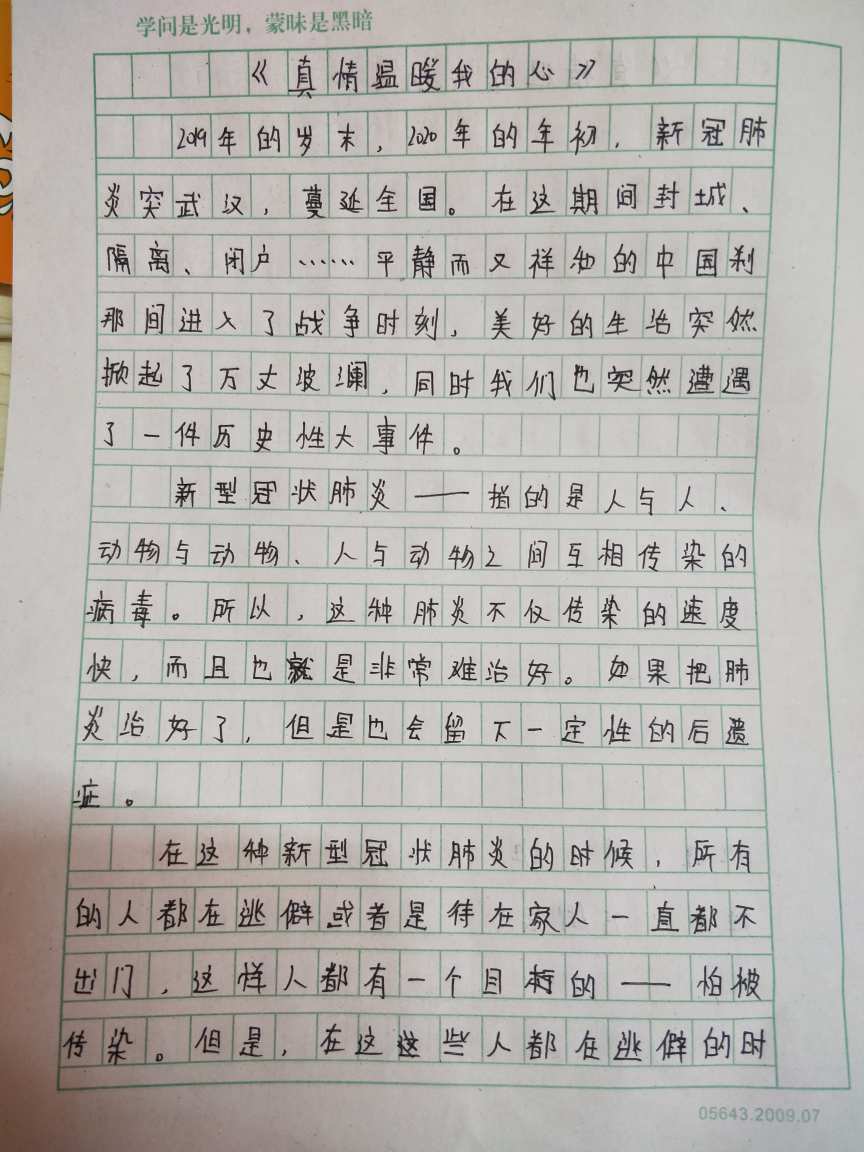 学问是光明，蒙昧是黑暗
《真情温暖我的心》
2019年的岁末，2020年的年初，新冠肺
炎突武汉，蔓延全国。在这期间封城、
隔离、闭户……平静而又祥和的中国刹
那间进入了战争时刻，美好的生活突然
掀起了万丈波澜，同时我们也突然遭遇
了一件历史性大事件。
新型冠状肺炎——指的是人与人、
动物与动物、人与动物之间互相传染的
病毒。所以，这种肺炎不仅传染的速度
快，而且也就是非常难治好。如果把肺
炎治好了，但是也会留下一定性的后遗
症。
在这种新型冠状肺炎的时候，所有
的人都在逃僻或者是待在家人一直都不
出门，这样人都有一个目的——怕被
传染。但是，在这这些人都在逃僻的时
05643.2009.07